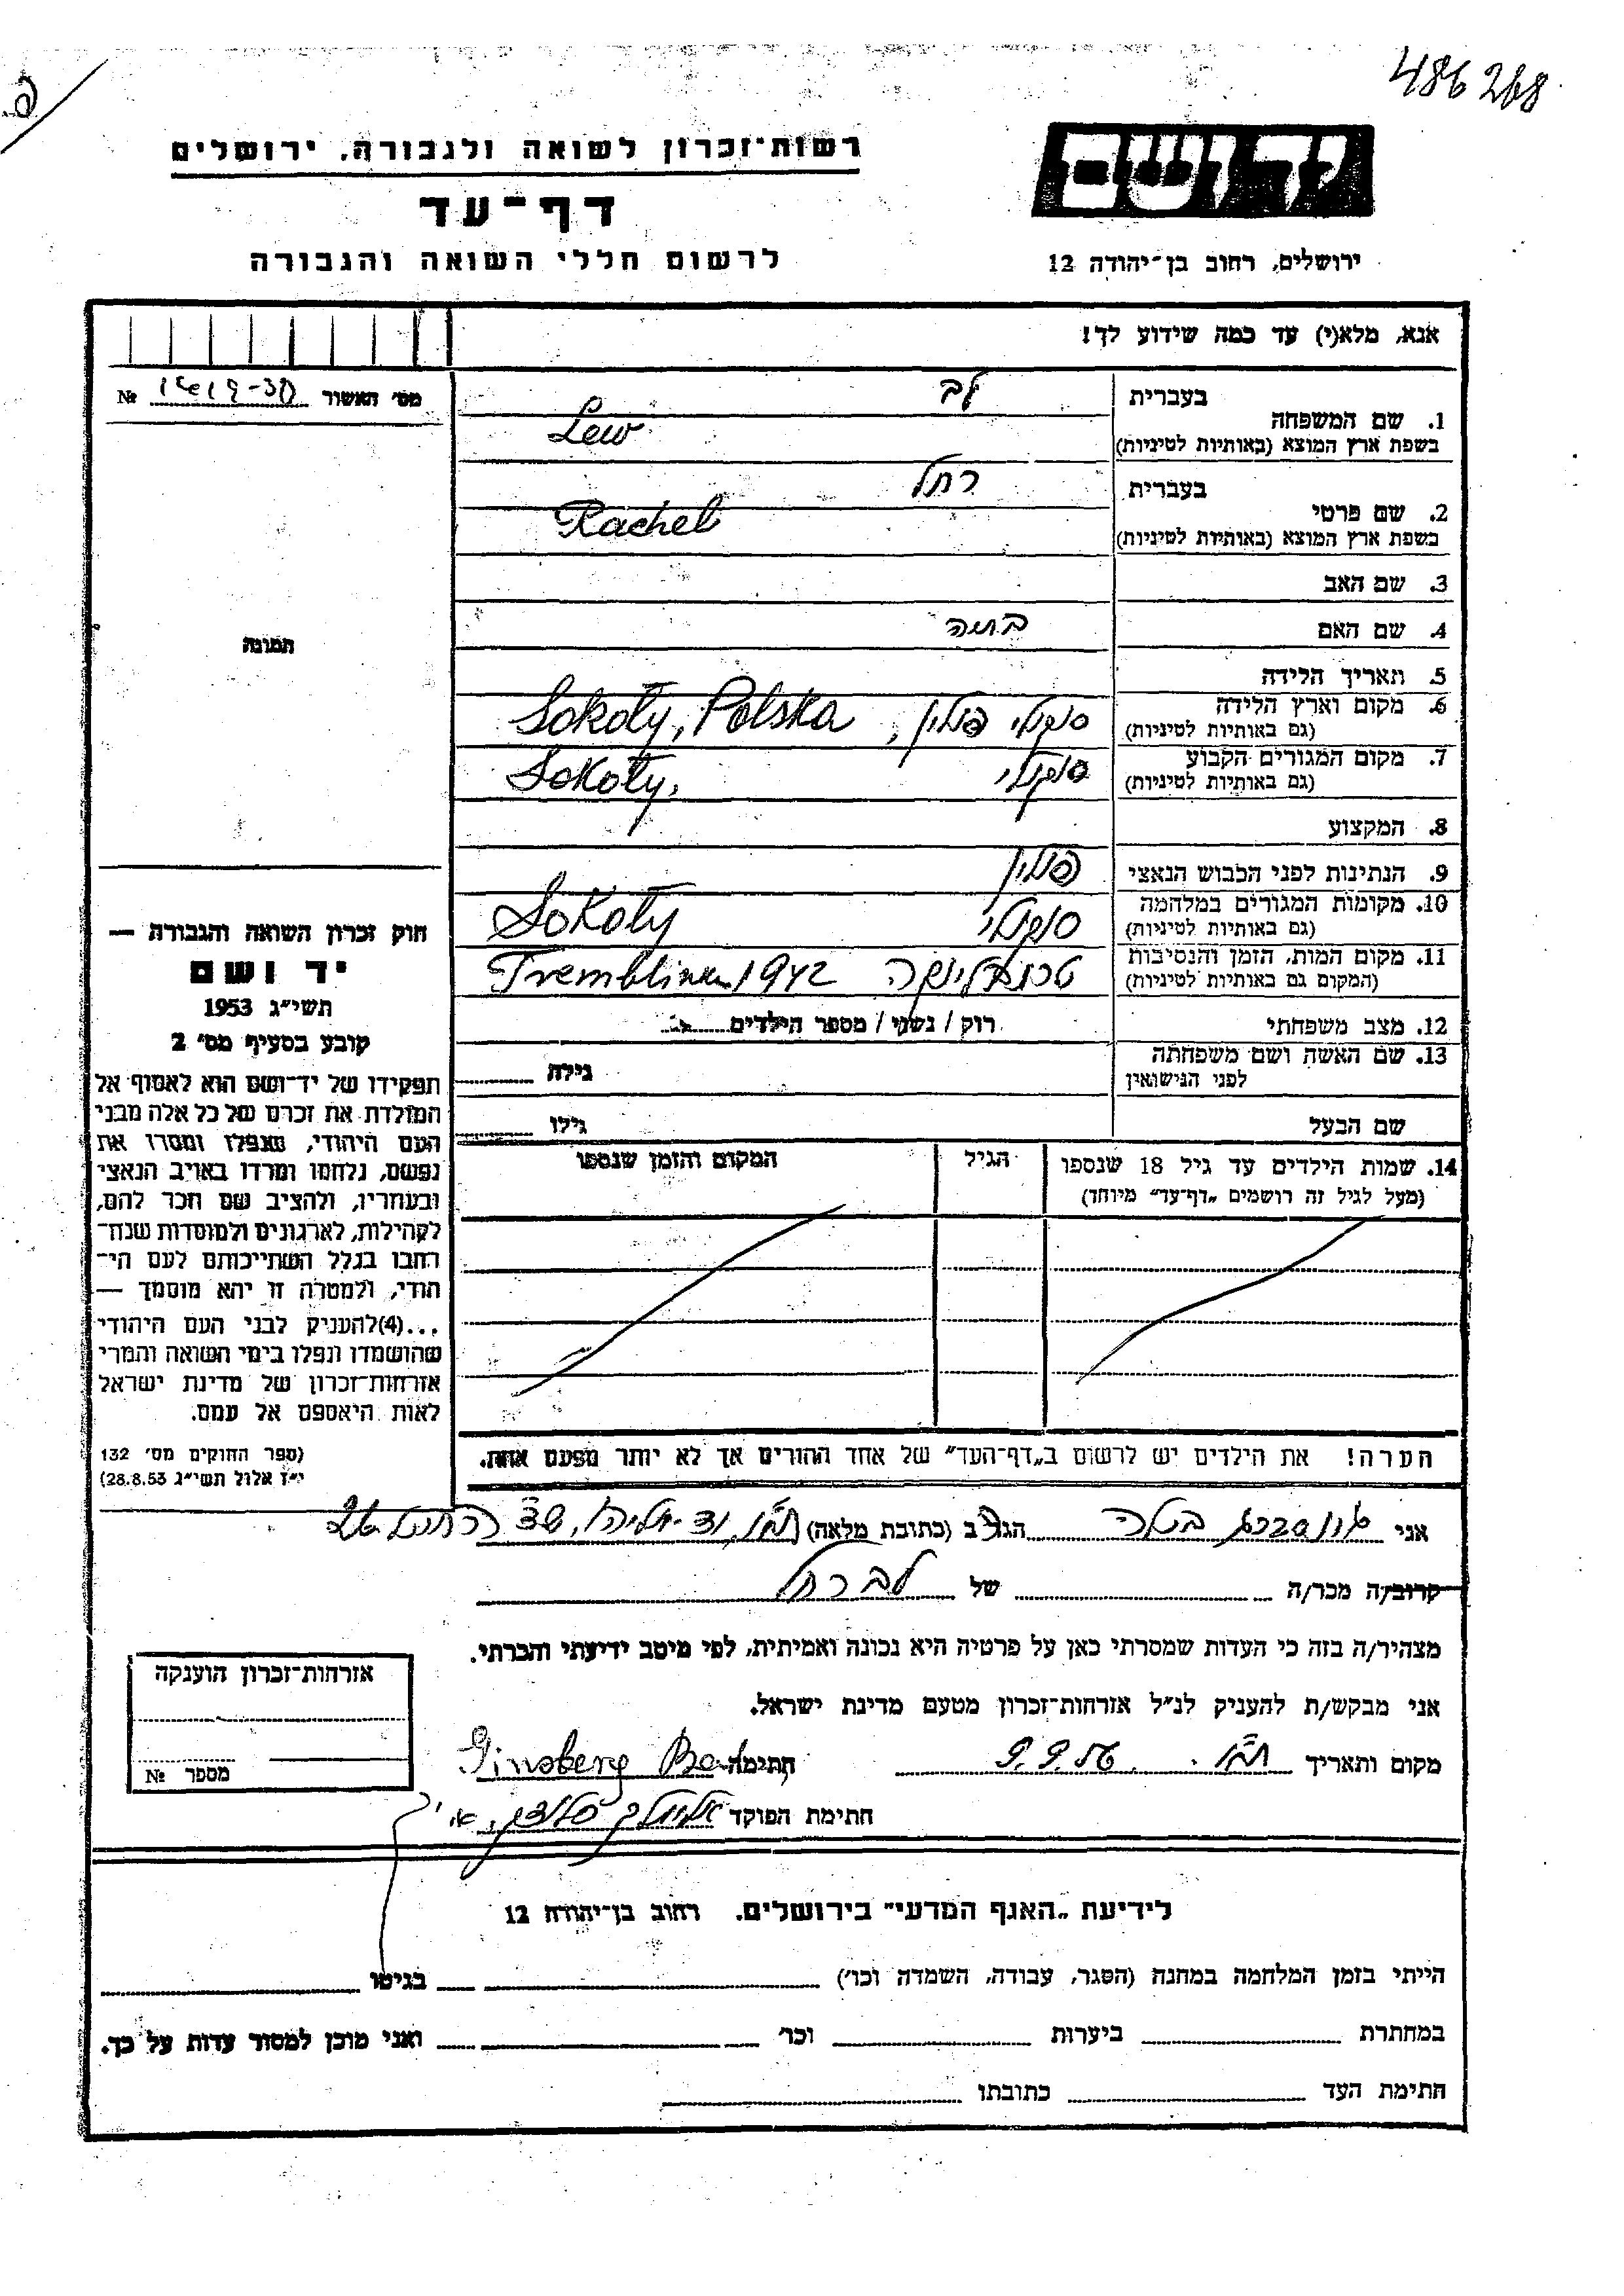 486268
רשות־זכרון לשואה ולגבורה, ירושלים
דף־עד
לרשום חללי השואה והגבורה
יד ושם
ירושלים, רחוב בן־יהודה 12
אנא, מלא(י) עד כמה שידוע לך!
מס׳ האשור №
בעברית לב
1. שם המשפחה
בשפת ארץ המוצא (באותיות לטיניות) Lew
בעברית רחל
2. שם פרטי
בשפת ארץ המוצא (באותיות לטיניות) Rachel
3. שם האב
4. שם האם בתיה
5. תאריך הלידה
6. מקום וארץ הלידה סוקולי פולין, Sokoły, Polska
(גם באותיות לטיניות)
7. מקום המגורים הקבוע סוקולי Sokoły,
(גם באותיות לטיניות)
8. המקצוע
9. הנתינות לפני הכבוש הנאצי פולין
10. מקומות המגורים במלחמה סוקולי Sokoły
(גם באותיות לטיניות)
11. מקום המות, הזמן והנסיבות טרמבלינקה Tremblinka 1942
(המקום גם באותיות לטיניות)
12. מצב משפחתי רוק / נשוי / מספר הילדים
13. שם האשה ושם משפחתה
לפני הנישואין גילה
שם הבעל גילו
14. שמות הילדים עד גיל 18 שנספו הגיל המקום והזמן שנספו
(מעל לגיל זה רושמים „דף־עד״ מיוחד)
הערה! את הילדים יש לרשום ב„דף־העד״ של אחד ההורים אך לא יותר מפעם אחת.
תמונה
חוק זכרון השואה והגבורה —
יד ושם
תשי״ג 1953
קובע בסעיף מס׳ 2
תפקידו של יד־ושם הוא לאסוף אל
המולדת את זכרם של כל אלה מבני
העם היהודי, שנפלו ומסרו את
נפשם, נלחמו ומרדו באויב הנאצי
ובעוזריו, ולהציב שם וזכר להם,
לקהילות, לארגונים ולמוסדות שנח־
רבו בגלל השתייכותם לעם הי־
הודי, ולמטרה זו יהא מוסמך —
...(4)להעניק לבני העם היהודי
שהושמדו ונפלו בימי השואה והמרי
אזרחות־זכרון של מדינת ישראל
לאות היאספם אל עמם.
(ספר החוקים מס׳ 132
י״ז אלול תשי״ג 28.8.53)
אני גינזברג בטלה הגר ב (כתובת מלאה)
קרוב/ה מכר/ה של לב רחל
מצהיר/ה בזה כי העדות שמסרתי כאן על פרטיה היא נכונה ואמיתית, לפי מיטב ידיעתי והכרתי.
אני מבקש/ת להעניק לנ״ל אזרחות־זכרון מטעם מדינת ישראל.
מקום ותאריך ת״א. 9.9.56 חתימה Ginsberg
חתימת הפוקד
אזרחות־זכרון הוענקה
מספר №
לידיעת „האגף המדעי״ בירושלים. רחוב בן־יהודה 12
הייתי בזמן המלחמה במחנה (הסגר, עבודה, השמדה וכו׳) בגיטו
במחתרת ביערות וכו׳ ואני מוכן למסור עדות על כך.
חתימת העד כתובתו